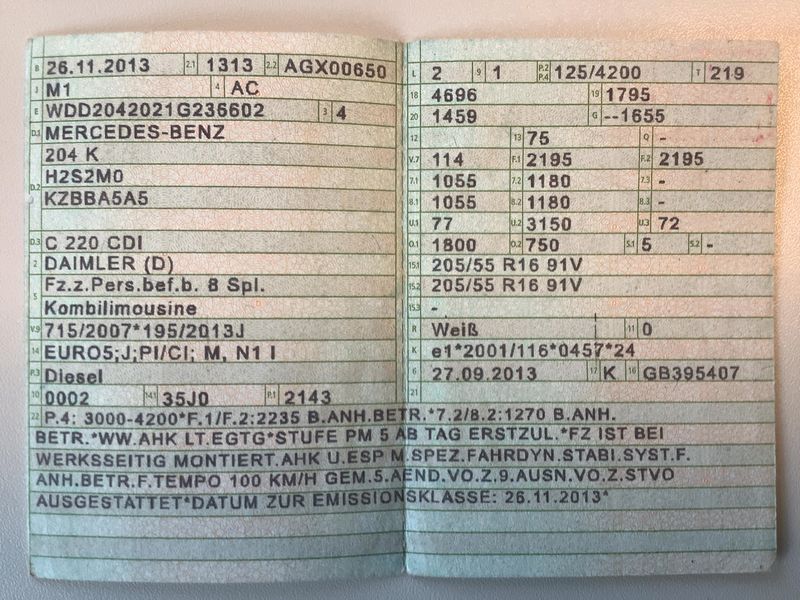 B 26.11.2013 2.1 1313 2.2 AGX00650
J M1 4 AC
E WDD2042021G236602 3 4
D.1 MERCEDES-BENZ
204 K
D.2 H2S2M0
KZBBA5A5
D.3 C 220 CDI
2 DAIMLER (D)
5 Fz.z.Pers.bef.b. 8 Spl.
Kombilimousine
V.9 715/2007*195/2013J
14 EURO5;J;PI/CI; M, N1 I
P.3 Diesel
10 0002 14.1 35J0 P.1 2143
L 2 9 1 P.2 P.4 125/4200 T 219
18 4696 19 1795
20 1459 G --1655
12 13 75 Q -
V.7 114 F.1 2195 F.2 2195
7.1 1055 7.2 1180 7.3 -
8.1 1055 8.2 1180 8.3 -
U.1 77 U.2 3150 U.3 72
O.1 1800 O.2 750 S.1 5 S.2 -
15.1 205/55 R16 91V
15.2 205/55 R16 91V
15.3 -
R Weiß 11 0
K e1*2001/116*0457*24
6 27.09.2013 17 K 16 GB395407
21
22 P.4: 3000-4200*F.1/F.2:2235 B.ANH.BETR.*7.2/8.2:1270 B.ANH.
BETR.*WW.AHK LT.EGTG*STUFE PM 5 AB TAG ERSTZUL.*FZ IST BEI
WERKSSEITIG MONTIERT.AHK U.ESP M.SPEZ.FAHRDYN.STABI.SYST.F.
ANH.BETR.F.TEMPO 100 KM/H GEM.5.AEND.VO.Z.9.AUSN.VO.Z.STVO
AUSGESTATTET*DATUM ZUR EMISSIONSKLASSE: 26.11.2013*